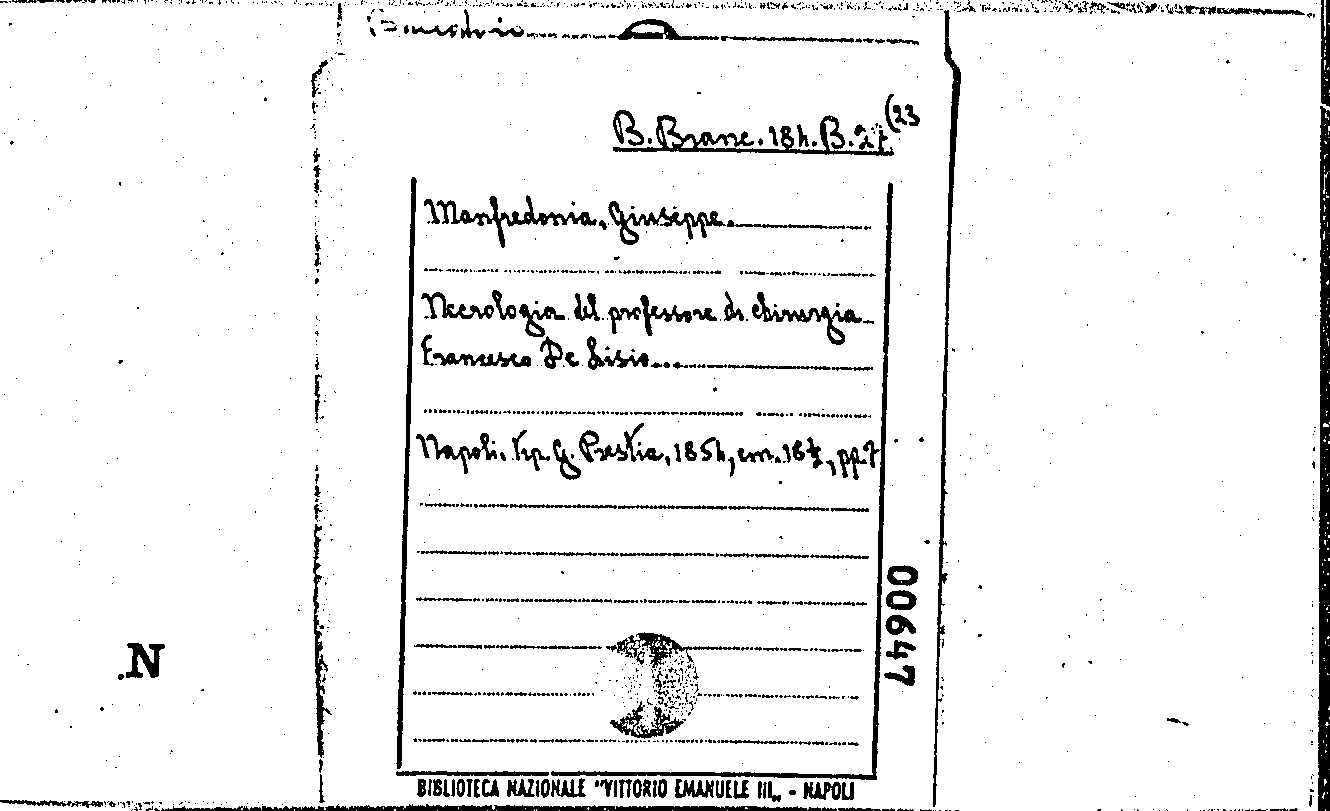 B. Branc. 184. B. 27 (23
Manfredonia, Giuseppe.
Necrologia del professore di chirurgia
Francesco De Lisio...
Napoli. Tip. G. Prestia, 1854, cm. 18½, pp. 7
00647
N
BIBLIOTECA NAZIONALE "VITTORIO EMANUELE III„ - NAPOLI